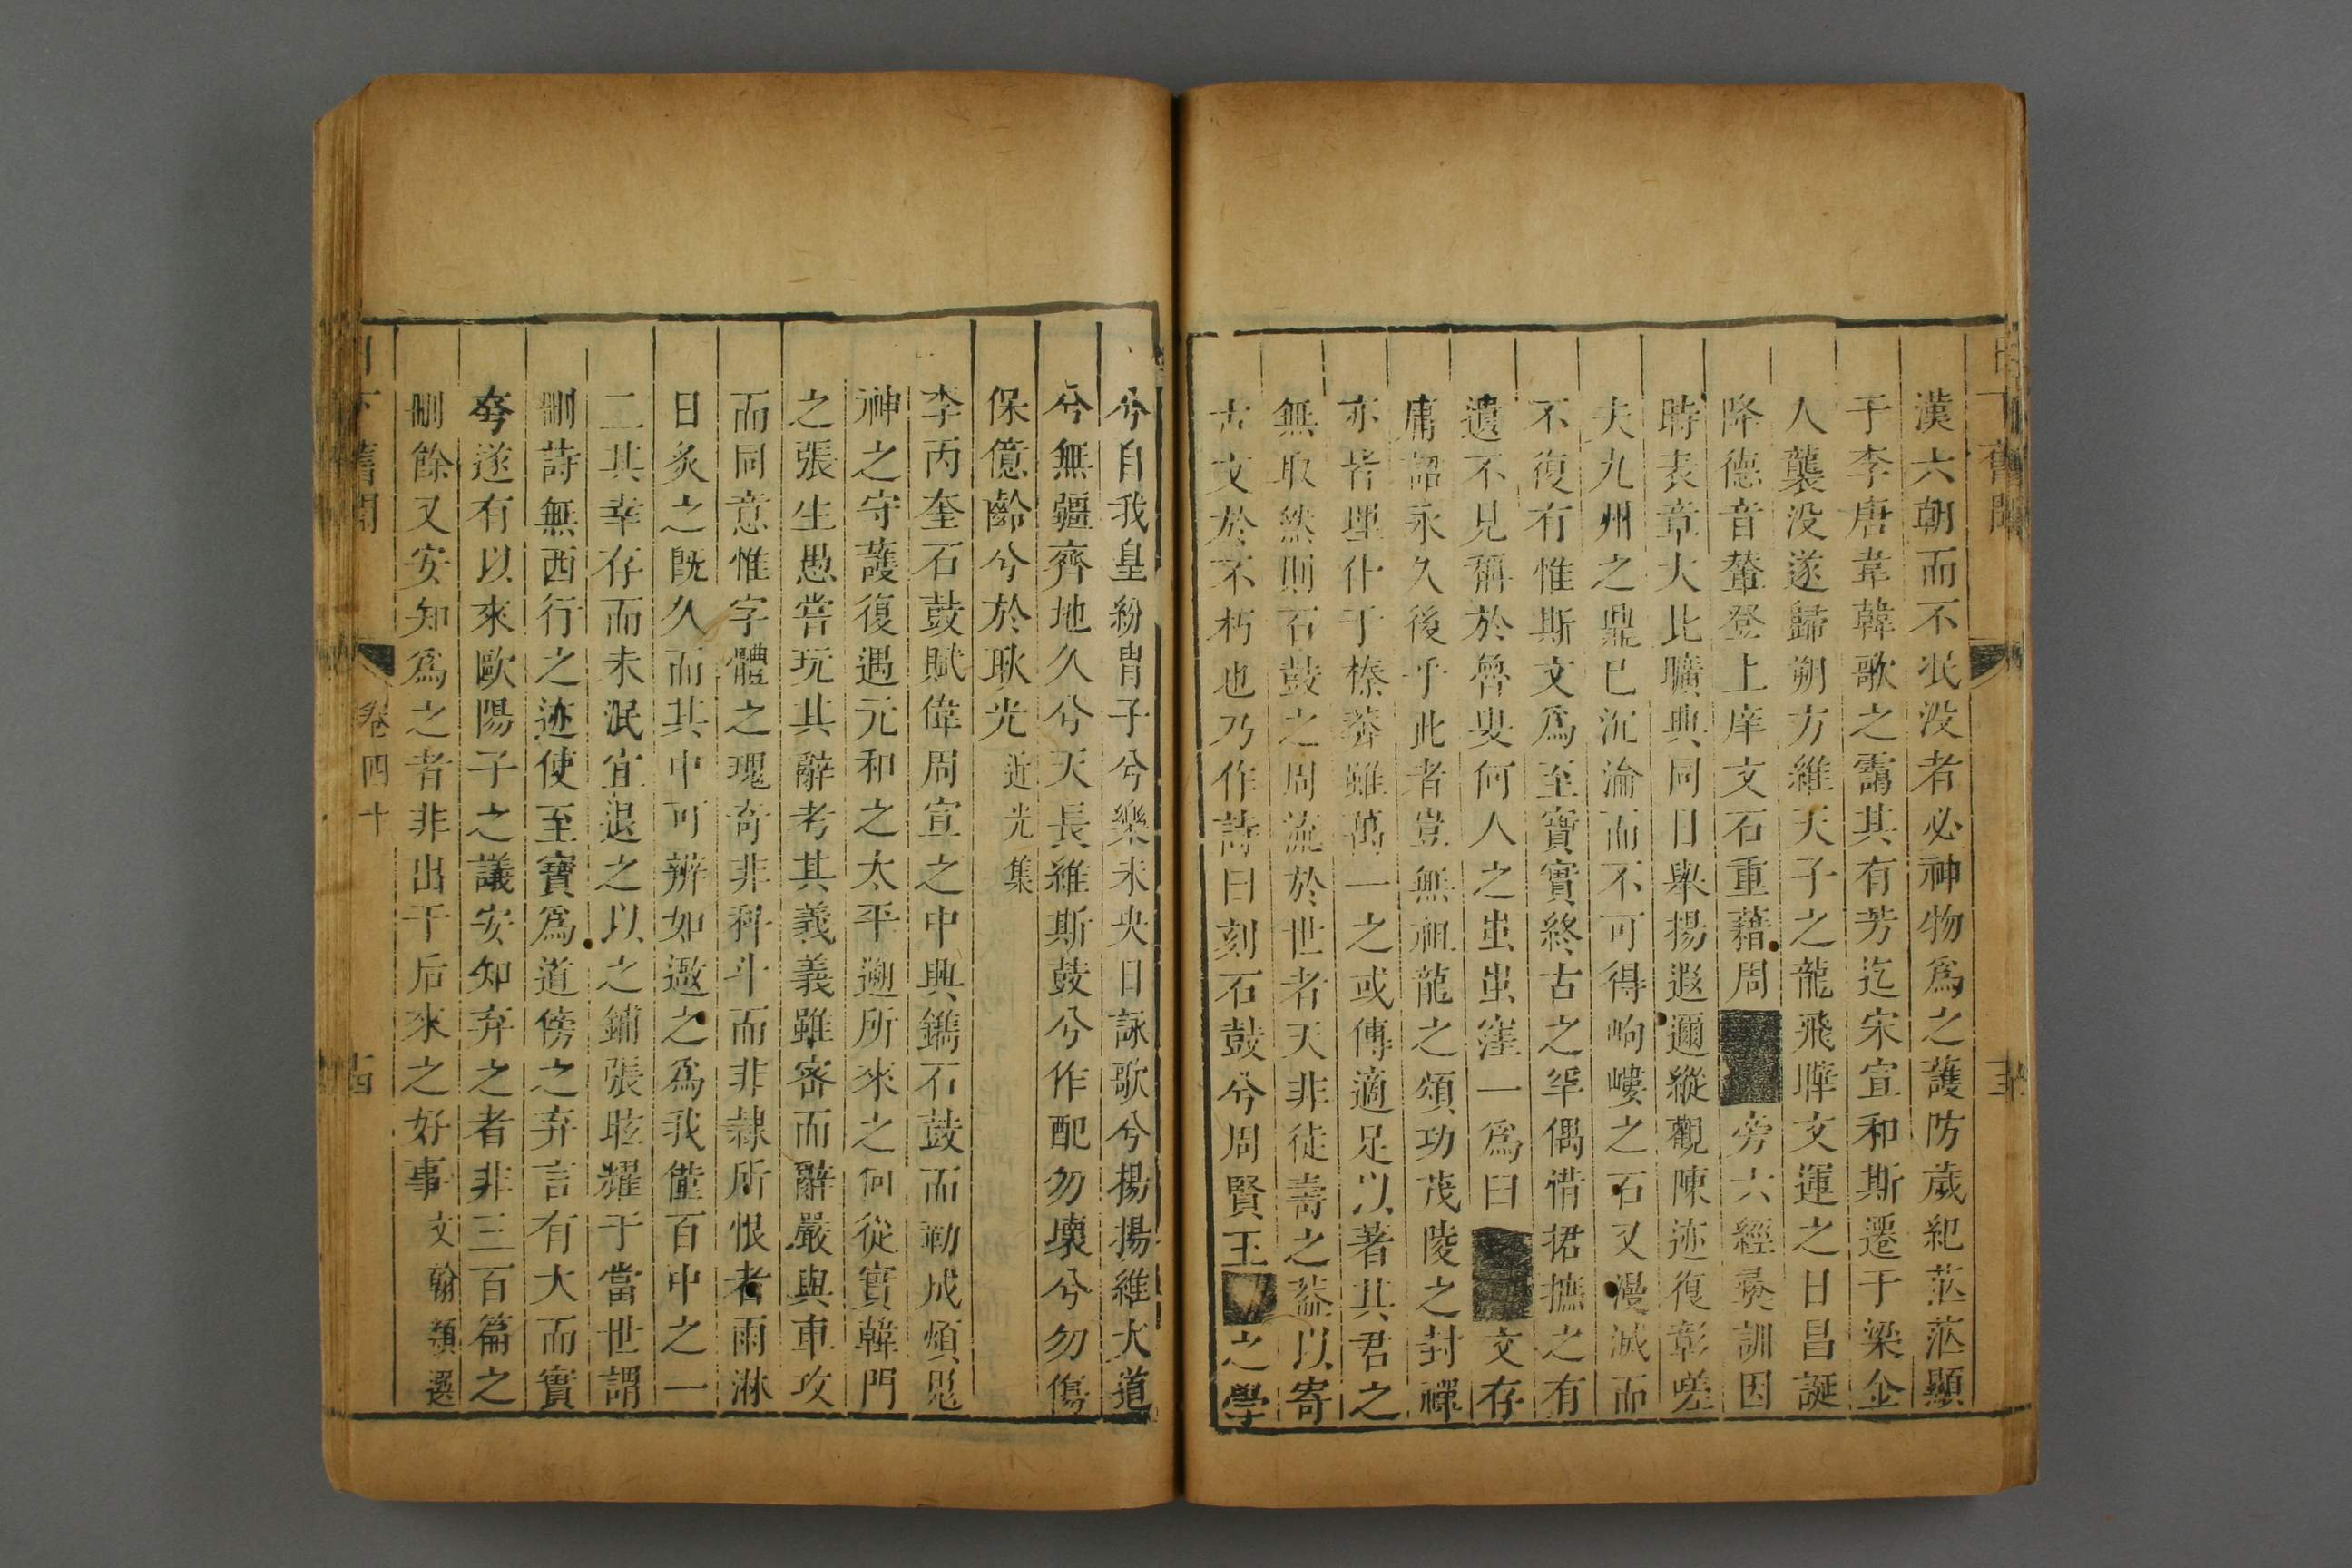 日下舊聞
漢六朝而不泯没者必神物爲之護防歲紀茫茫顯
于李唐韋韓歌之霭其有芳迄宋宣和斯遷于梁金
人襲没遂歸朔方維天子之龍飛暐文運之日昌誕
降德音輦登上庠文石重藉周旁六經彛訓因
時表章大比曠典同日舉揚遐邇縱觀陳迹復彰嗟
夫九州之鼎已沉淪而不可得岣嶁之石又漫滅而
不復有惟斯文爲至寶實終古之罕偶惜捃摭之有
遺不見稱於魯叟何人之蚩蚩窪一爲臼文存
庸詔永久後乎此者豈無祖龍之頌功茂陵之封禪
亦皆埋仆于榛莽雖萬一之或傳適足以著其君之
無取然則石鼓之周流於世者天非徒壽之葢以寄
古文於不朽也乃作詩曰刻石鼓兮周賢王之學
兮自我皇紛胄子兮樂未央日詠歌兮揚揚維大道
兮無疆齊地久兮天長維斯鼓兮作配勿壞兮勿傷
保億齡兮於耿光 近光集
李丙奎石鼓賦偉周宣之中興鐫石鼓而勒成煩鬼
神之守護復遇元和之太平遡所來之何從實韓門
之張生愚嘗玩其辭考其義義雖密而辭嚴與車攻
而同意惟字體之瑰奇非科斗而非隷所恨者雨淋
日炙之旣久而其中可辨如邀之爲我僅百中之一
二其幸存而未泯宜退之以之鋪張眩耀于當世謂
刪詩無西行之迹使至寶爲道傍之弃言有大而實
夸遂有以來歐陽子之議安知弃之者非三百篇之
刪餘又安知爲之者非出于后來之好事 文翰類選
日下舊聞 卷四十 古